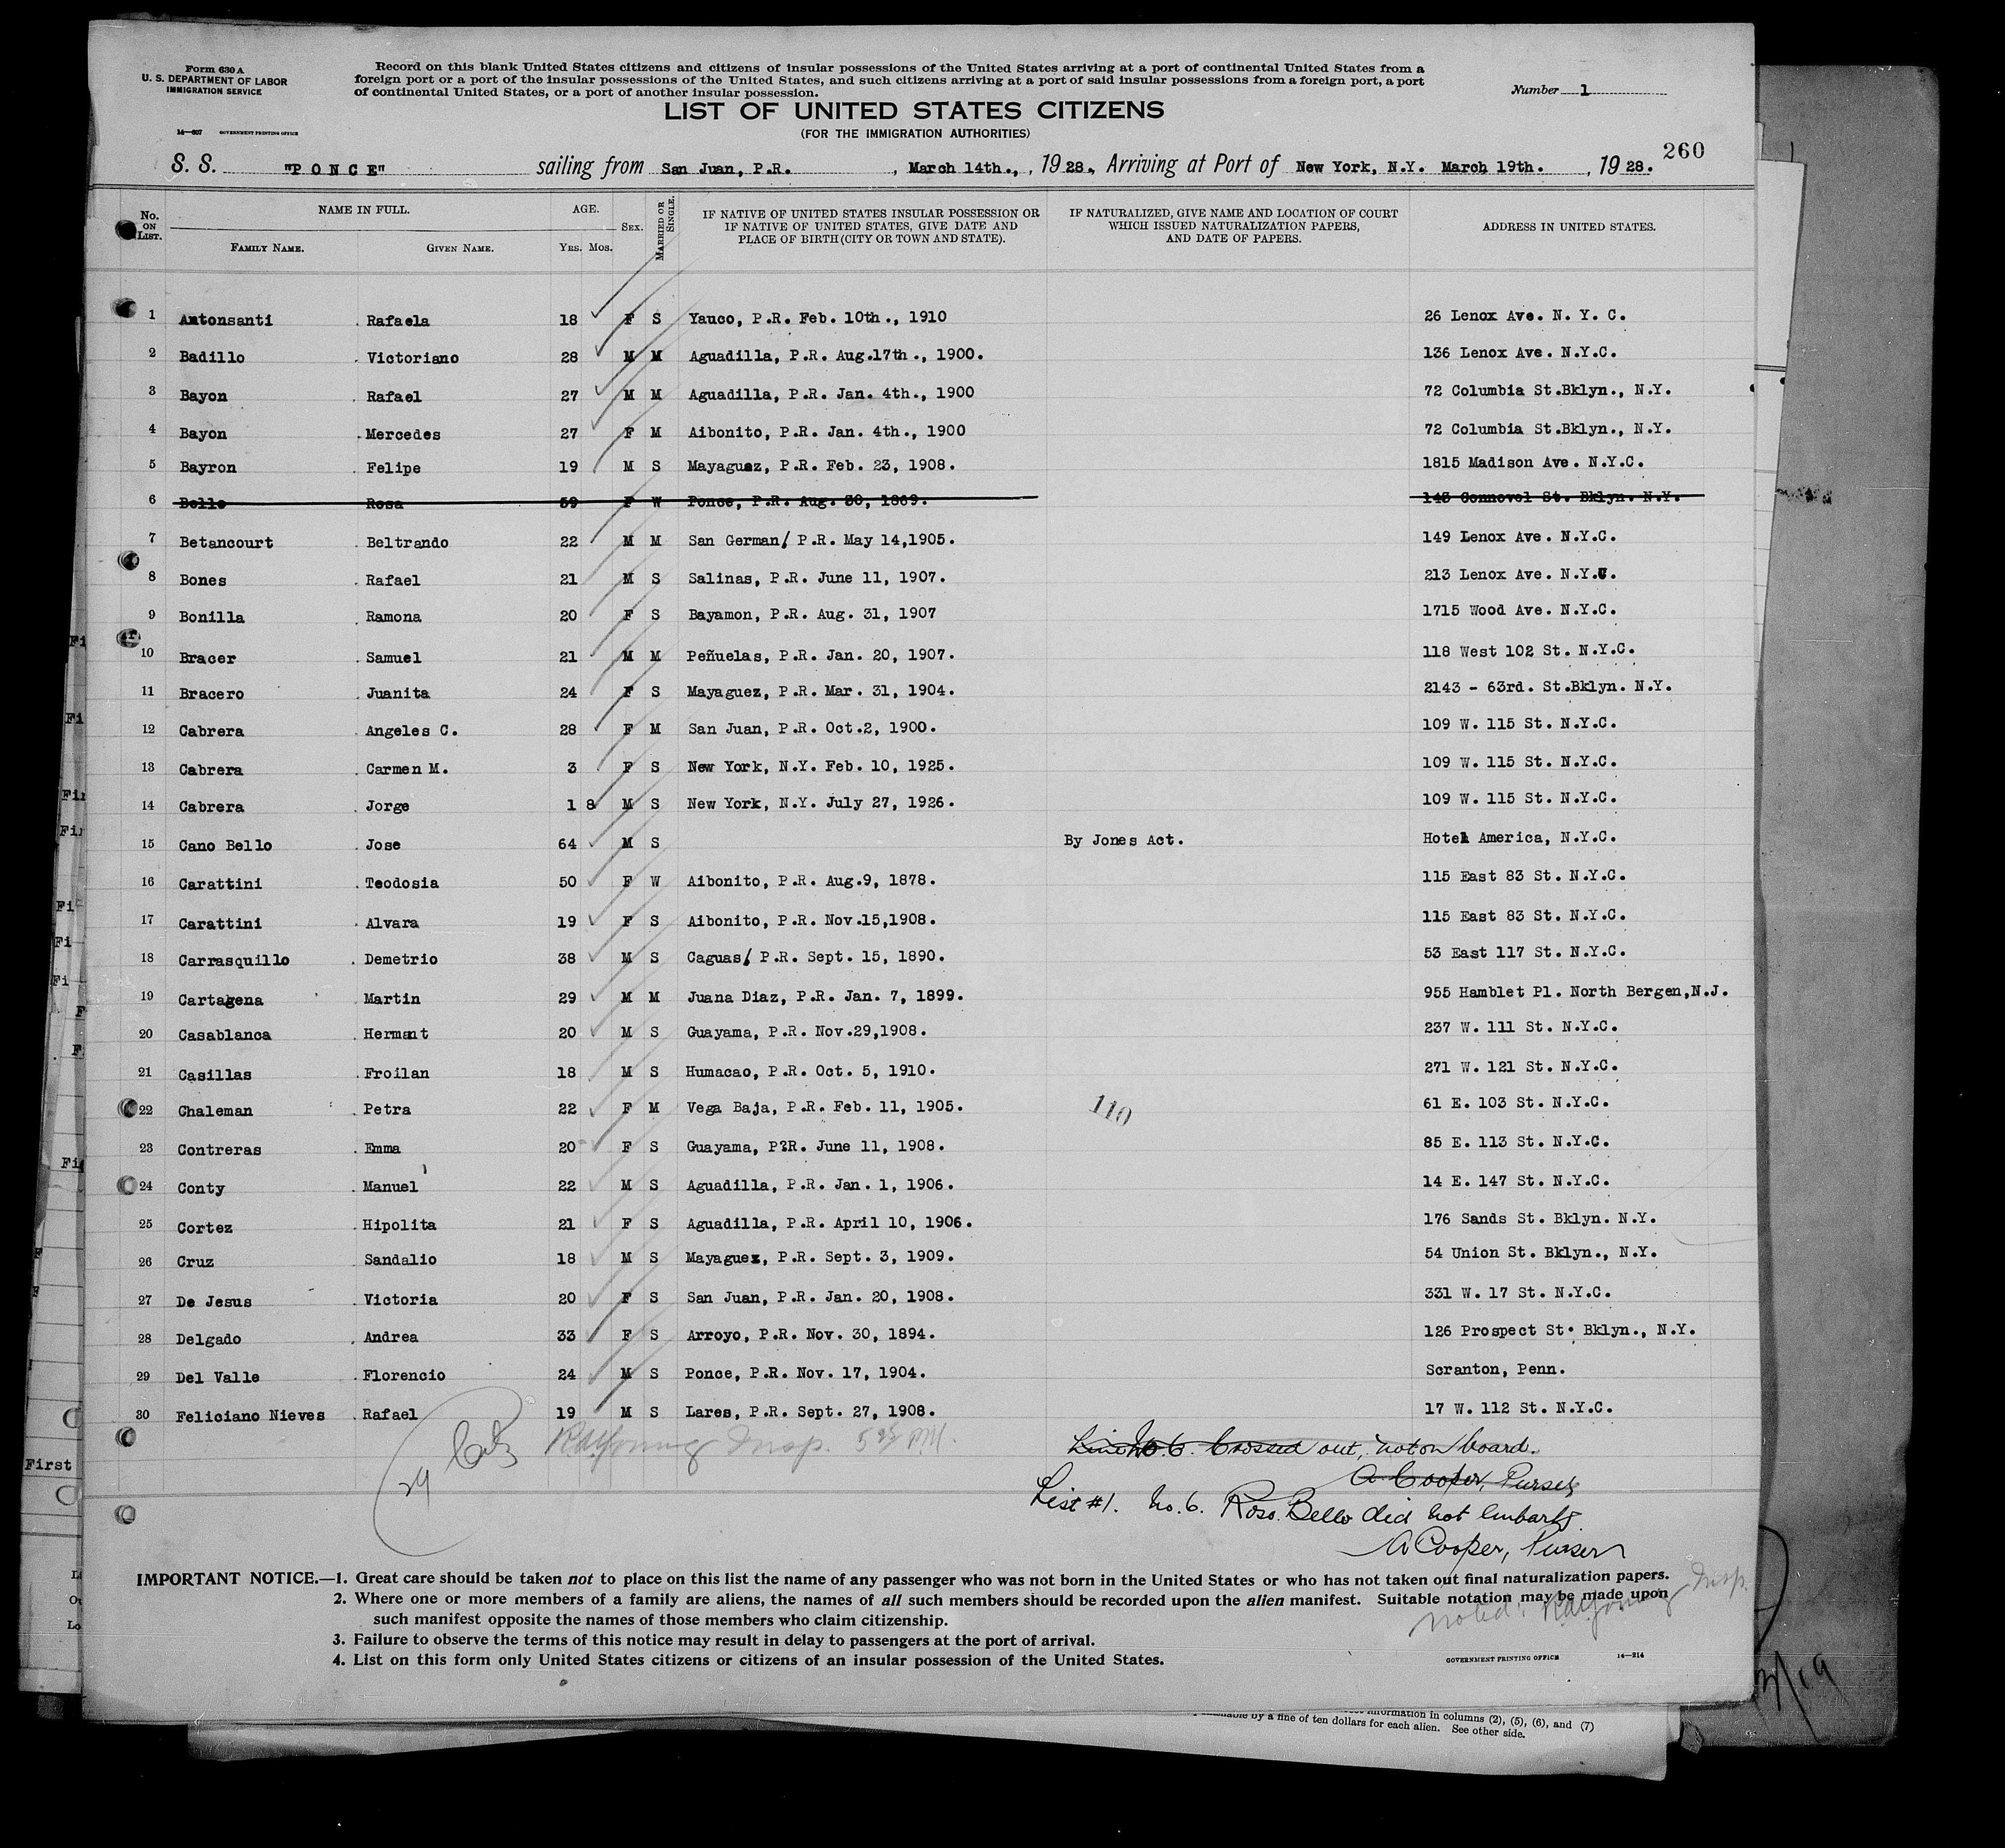 Form 630 A
U. S. DEPARTMENT OF LABOR
IMMIGRATION SERVICE
14—607 GOVERNMENT PRINTING OFFICE
Record on this blank United States citizens and citizens of insular possessions of the United States arriving at a port of continental United States from a
foreign port or a port of the insular possessions of the United States, and such citizens arriving at a port of said insular possessions from a foreign port, a port
of continental United States, or a port of another insular possession.
Number 1
LIST OF UNITED STATES CITIZENS
(FOR THE IMMIGRATION AUTHORITIES)
260
S. S. "PONCE" sailing from San Juan, P.R. , March 14th., , 1928, Arriving at Port of New York, N.Y. March 19th. , 1928.
No. ON LIST. NAME IN FULL. FAMILY NAME. GIVEN NAME. AGE. YRS. MOS. SEX. MARRIED OR SINGLE. IF NATIVE OF UNITED STATES INSULAR POSSESSION OR IF NATIVE OF UNITED STATES, GIVE DATE AND PLACE OF BIRTH (CITY OR TOWN AND STATE). IF NATURALIZED, GIVE NAME AND LOCATION OF COURT WHICH ISSUED NATURALIZATION PAPERS, AND DATE OF PAPERS. ADDRESS IN UNITED STATES.
1 Antonsanti Rafaela 18 F S Yauco, P.R. Feb. 10th., 1910 26 Lenox Ave. N. Y. C.
2 Badillo Victoriano 28 M M Aguadilla, P.R. Aug.17th., 1900. 136 Lenox Ave. N.Y.C.
3 Bayon Rafael 27 M M Aguadilla, P.R. Jan. 4th., 1900 72 Columbia St.Bklyn., N.Y.
4 Bayon Mercedes 27 F M Aibonito, P.R. Jan. 4th., 1900 72 Columbia St.Bklyn., N.Y.
5 Bayron Felipe 19 M S Mayaguez, P.R. Feb. 23, 1908. 1815 Madison Ave. N.Y.C.
6 Bello Rosa 59 F W Ponce, P.R. Aug. 30, 1869. 143 Connovel St. Bklyn. N.Y.
7 Betancourt Beltrando 22 M M San German/ P.R. May 14,1905. 149 Lenox Ave. N.Y.C.
8 Bones Rafael 21 M S Salinas, P.R. June 11, 1907. 213 Lenox Ave. N.Y.C.
9 Bonilla Ramona 20 F S Bayamon, P.R. Aug. 31, 1907 1715 Wood Ave. N.Y.C.
10 Bracer Samuel 21 M M Peñuelas, P.R. Jan. 20, 1907. 118 West 102 St. N.Y.C.
11 Bracero Juanita 24 F S Mayaguez, P.R. Mar. 31, 1904. 2143 - 63rd. St.Bklyn. N.Y.
12 Cabrera Angeles C. 28 F M San Juan, P.R. Oct.2, 1900. 109 W. 115 St. N.Y.C.
13 Cabrera Carmen M. 3 F S New York, N.Y. Feb. 10, 1925. 109 W. 115 St. N.Y.C.
14 Cabrera Jorge 1 8 M S New York, N.Y. July 27, 1926. 109 W. 115 St. N.Y.C.
15 Cano Bello Jose 64 M S By Jones Act. Hotel America, N.Y.C.
16 Carattini Teodosia 50 F W Aibonito, P.R. Aug.9, 1878. 115 East 83 St. N.Y.C.
17 Carattini Alvara 19 F S Aibonito, P.R. Nov.15,1908. 115 East 83 St. N.Y.C.
18 Carrasquillo Demetrio 38 M S Caguas/ P.R. Sept. 15, 1890. 53 East 117 St. N.Y.C.
19 Cartagena Martin 29 M M Juana Diaz, P.R. Jan. 7, 1899. 955 Hamblet Pl. North Bergen,N.J.
20 Casablanca Hermant 20 M S Guayama, P.R. Nov.29,1908. 237 W. 111 St. N.Y.C.
21 Casillas Froilan 18 M S Humacao, P.R. Oct. 5, 1910. 271 W. 121 St. N.Y.C.
22 Chaleman Petra 22 F M Vega Baja, P.R. Feb. 11, 1905. 110 61 E. 103 St. N.Y.C.
23 Contreras Emma 20 F S Guayama, P?R. June 11, 1908. 85 E. 113 St. N.Y.C.
24 Conty Manuel 22 M S Aguadilla, P.R. Jan. 1, 1906. 14 E. 147 St. N.Y.C.
25 Cortez Hipolita 21 F S Aguadilla, P.R. April 10, 1906. 176 Sands St. Bklyn. N.Y.
26 Cruz Sandalio 18 M S Mayaguez, P.R. Sept. 3, 1909. 54 Union St. Bklyn., N.Y.
27 De Jesus Victoria 20 F S San Juan, P.R. Jan. 20, 1908. 331 W. 17 St. N.Y.C.
28 Delgado Andrea 33 F S Arroyo, P.R. Nov. 30, 1894. 126 Prospect St. Bklyn., N.Y.
29 Del Valle Florencio 24 M S Ponce, P.R. Nov. 17, 1904. Scranton, Penn.
30 Feliciano Nieves Rafael 19 M S Lares, P.R. Sept. 27, 1908. 17 W. 112 St. N.Y.C.
Insp.
29
Line No. 6. Crossed out, not on board.
A Cooper, Purser
List #1. No. 6. Rosa Bello did not embark.
A Cooper, Purser
IMPORTANT NOTICE.—1. Great care should be taken not to place on this list the name of any passenger who was not born in the United States or who has not taken out final naturalization papers.
2. Where one or more members of a family are aliens, the names of all such members should be recorded upon the alien manifest. Suitable notation may be made upon
such manifest opposite the names of those members who claim citizenship.
3. Failure to observe the terms of this notice may result in delay to passengers at the port of arrival.
4. List on this form only United States citizens or citizens of an insular possession of the United States.
Noted: Insp.
GOVERNMENT PRINTING OFFICE 14—214
3/19
First
information in columns (2), (5), (6), and (7)
by a fine of ten dollars for each alien. See other side.